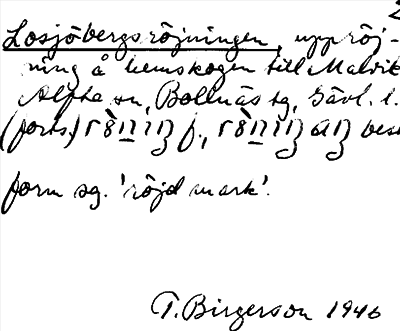 Losjöbergsröjningen, uppröj-
ning å hemskogen till Malvik
Alfta sn, Bollnäs tg, Gävl. l.
(forts.) f.,
form sg. 'röjd mark'.
T. Birgerson 1946